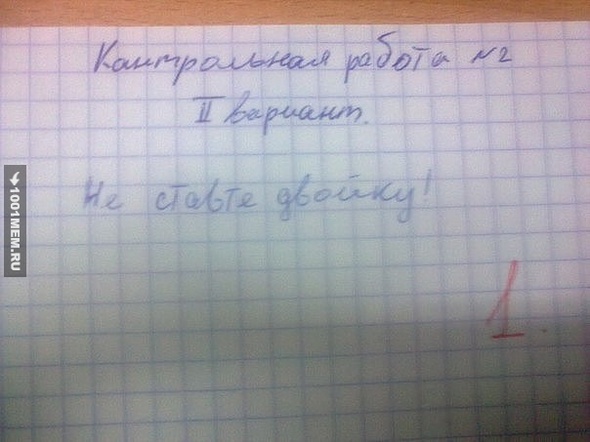 Контрольная работа №2
II вариант.
Не ставте двойку!
1.
1001MEM.RU